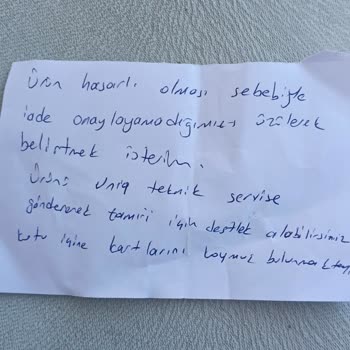 Ürün hasarlı olması sebebiyle
iade onaylayamadığımızı üzülerek
belirtmek isterim.
Ürünü uniq teknik servise
göndererek tamiri için destek alabilirsiniz
kutu içine kartlarını koymuş bulunmaktayız